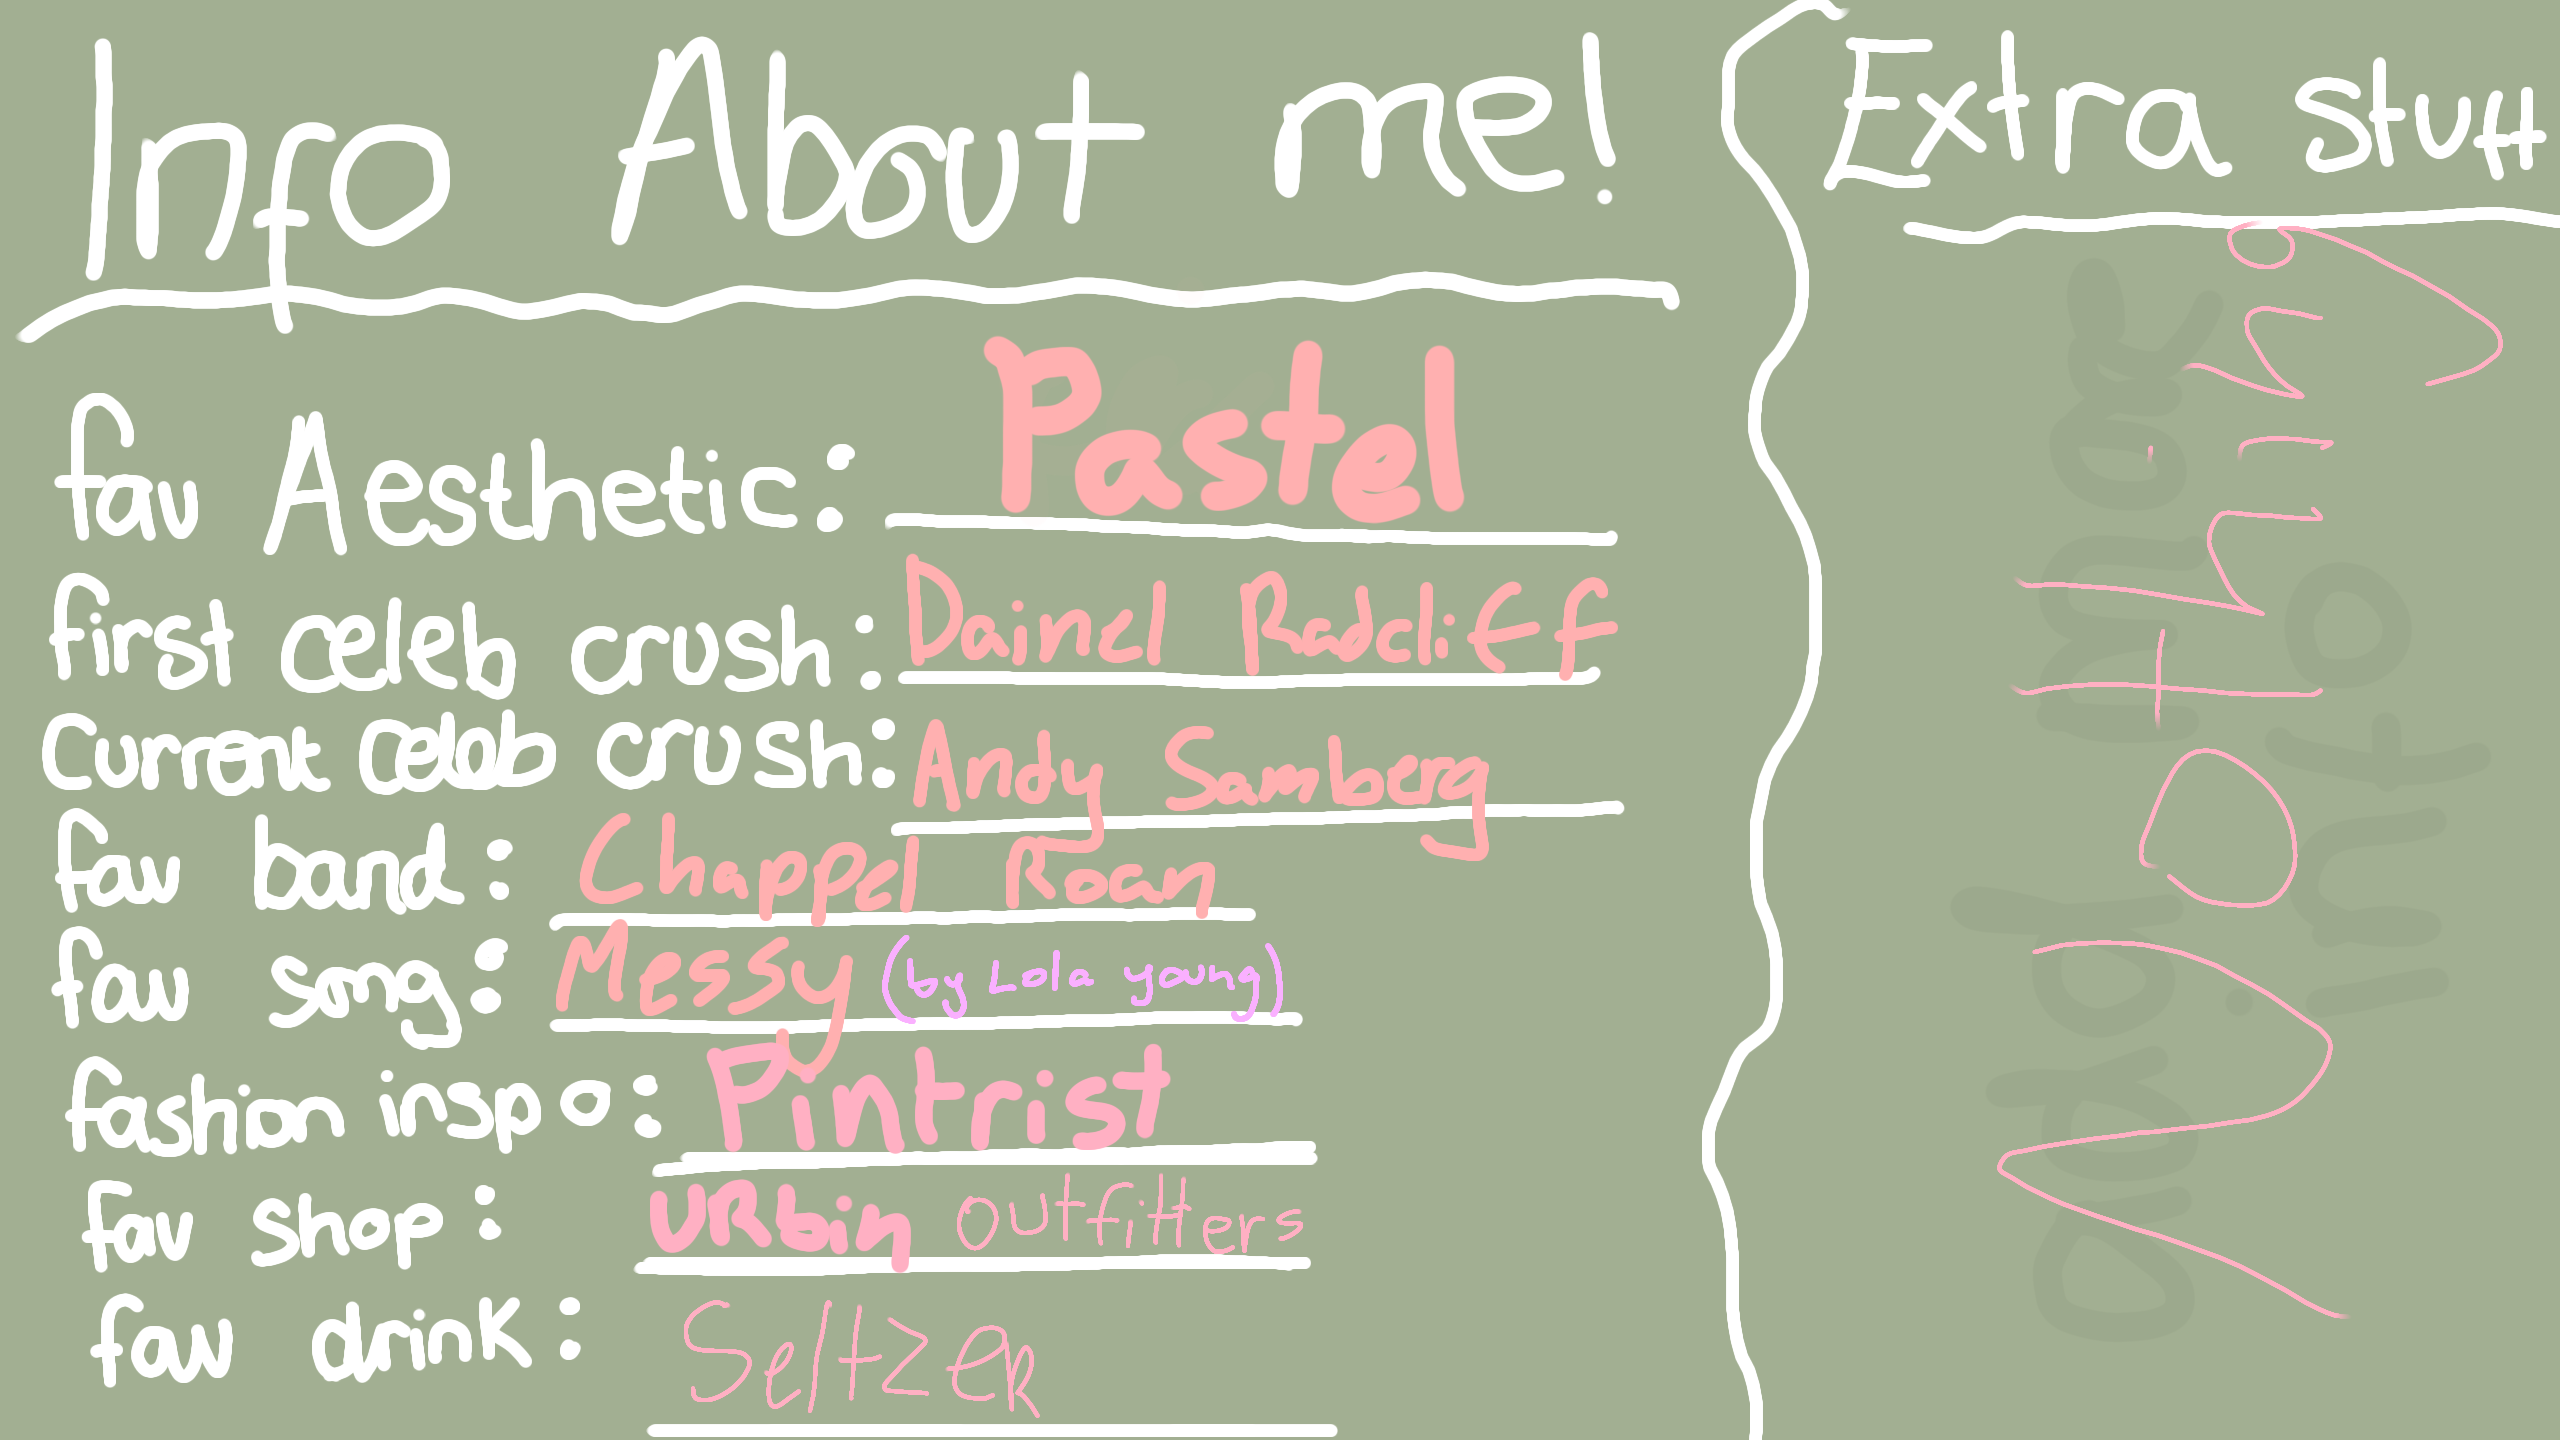 Info About me!
fav Aesthetic: Pastel
first celeb crush: Dainel Radcliff
Current Celeb crush: Andy Samberg
fav band: Chappel Roan
fav song: Messy (by Lola young)
fashion inspo: Pintrist
fav shop: URbin outfitters
fav drink: SeltzeR
Extra stuff
Nothing
add more
info